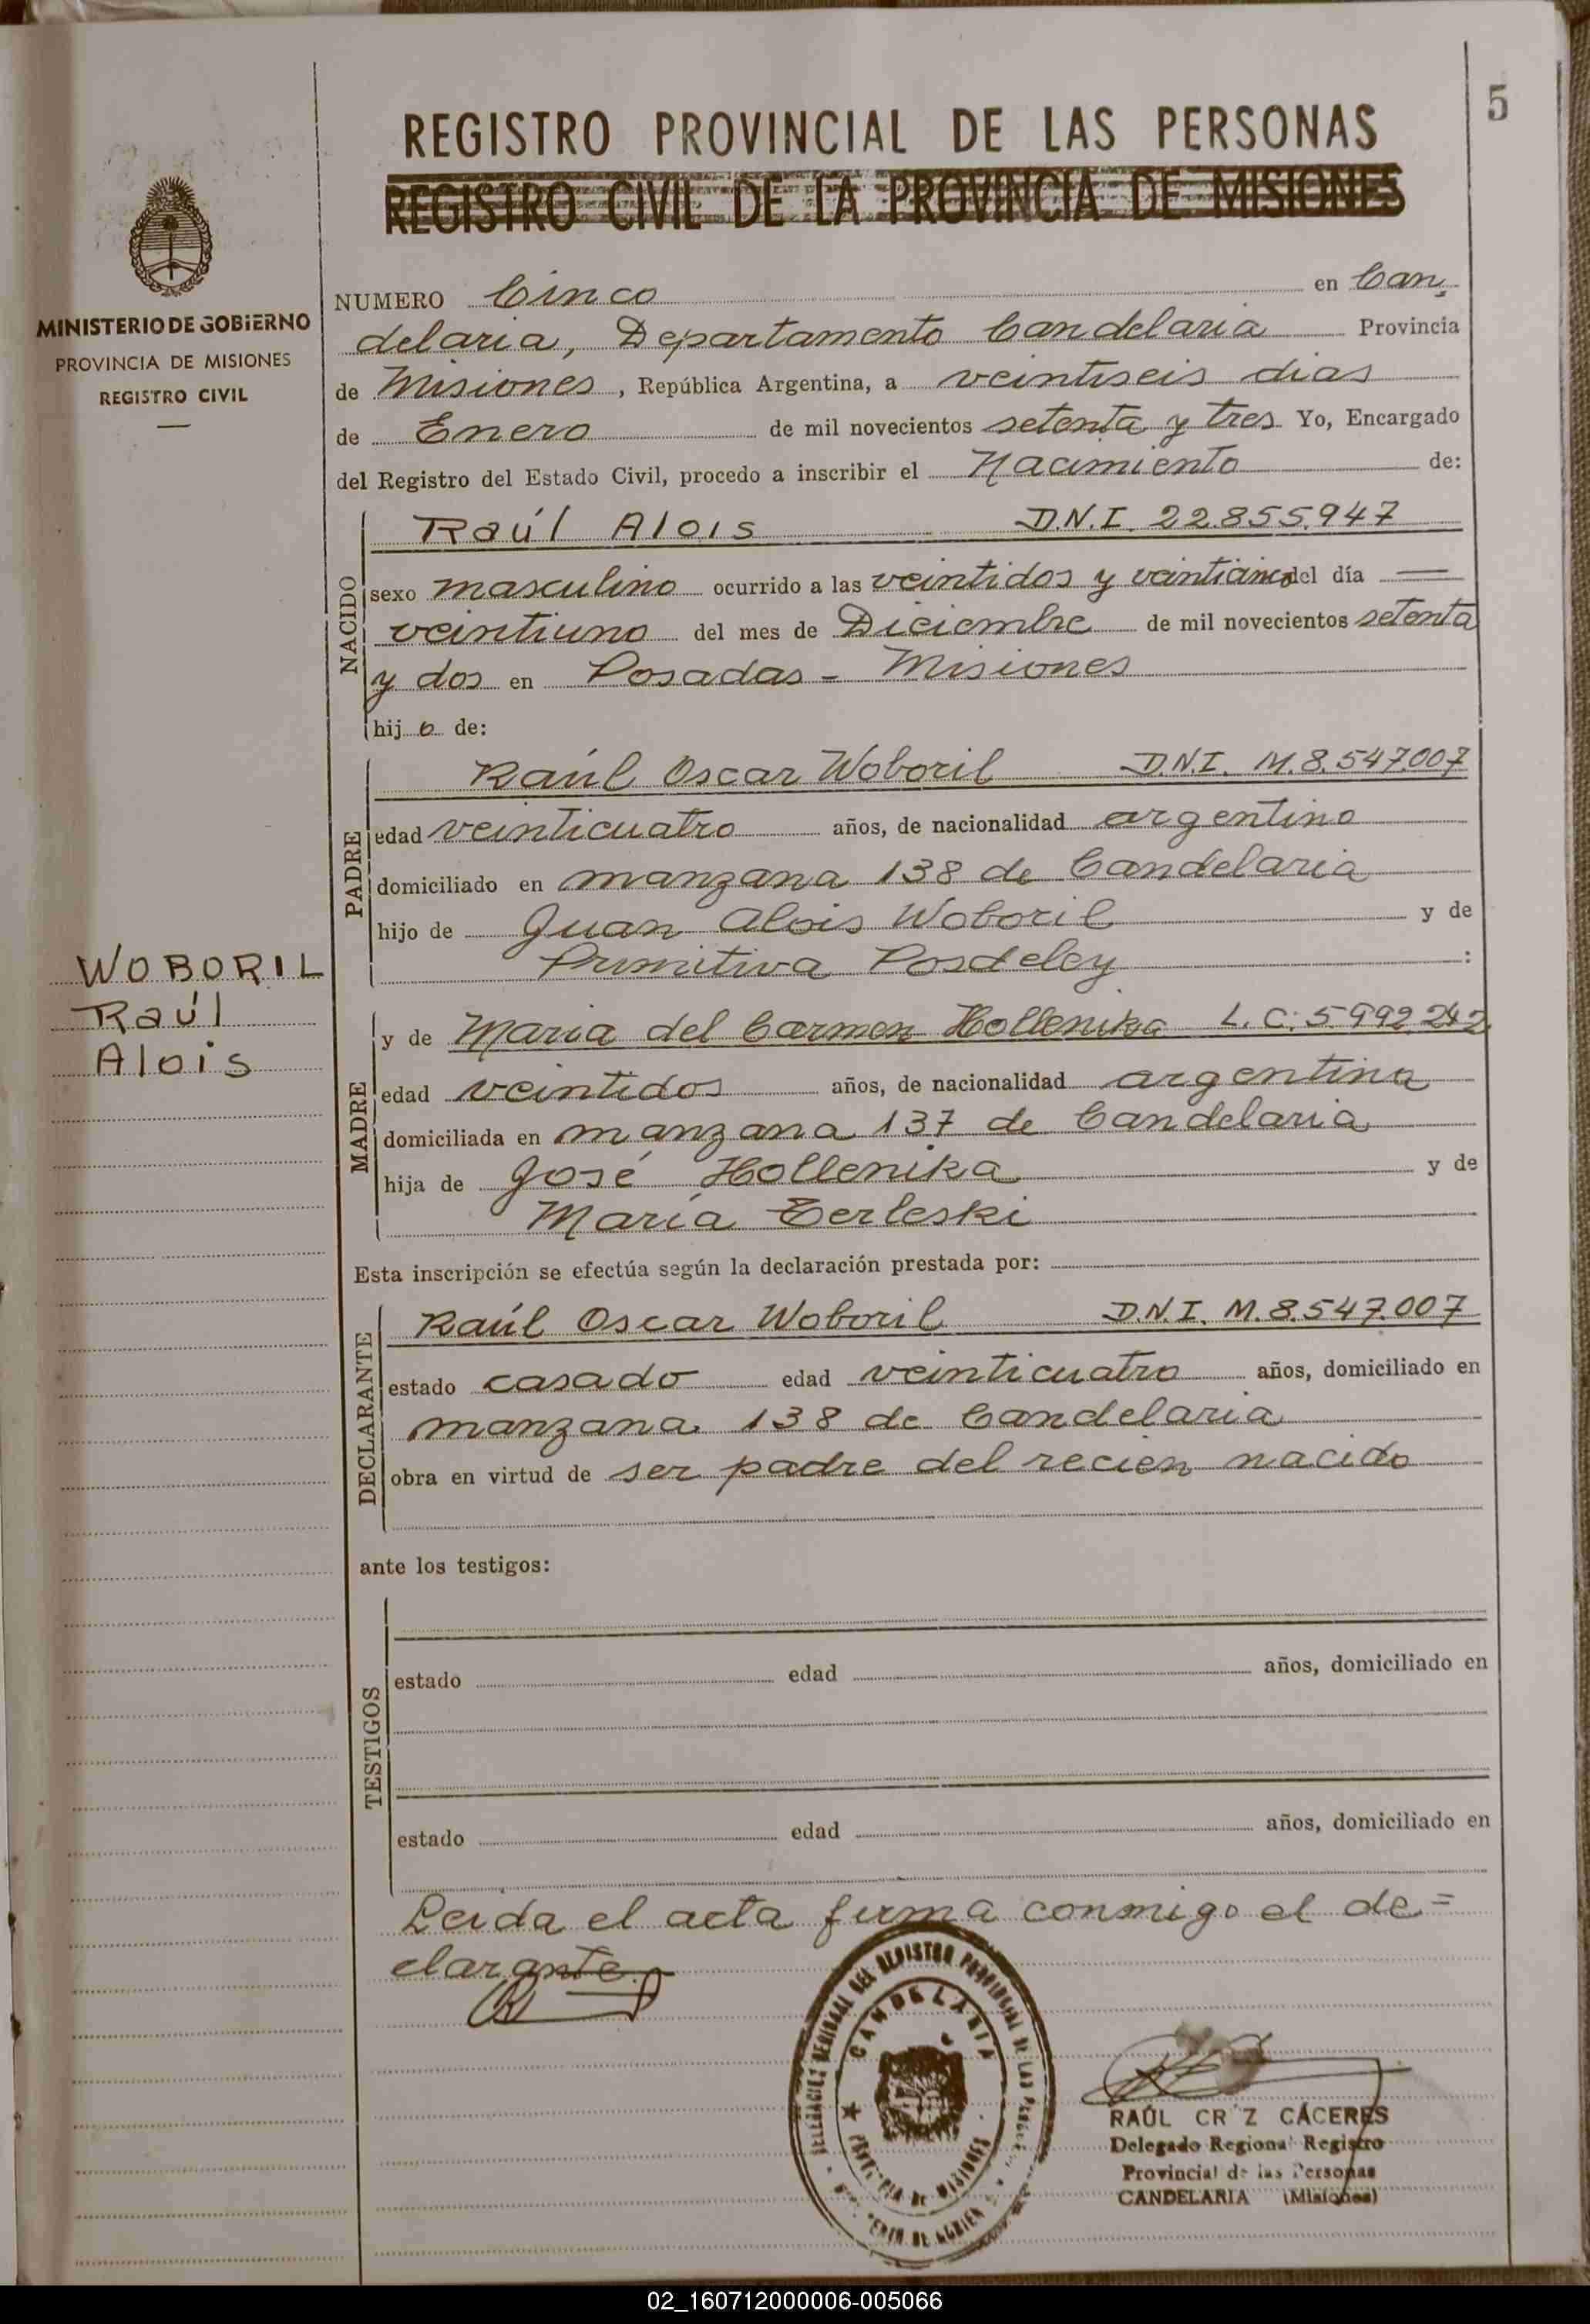 5
REGISTRO PROVINCIAL DE LAS PERSONAS
REGISTRO CIVIL DE LA PROVINCIA DE MISIONES
MINISTERIO DE GOBIERNO
PROVINCIA DE MISIONES
REGISTRO CIVIL
NUMERO Cinco en Can
delaria, Departamento Candelaria Provincia
de Misiones, República Argentina, a veintiseis dias
de Enero de mil novecientos setenta y tres Yo, Encargado
del Registro del Estado Civil, procedo a inscribir el Nacimiento de:
NACIDO
Raúl Alois D.N.I. 22.855.947
sexo masculino ocurrido a las veintidos y veinticinco del día —
veintiuno del mes de Diciembre de mil novecientos setenta
y dos en Posadas - Misiones
hijo de:
PADRE
Raúl Oscar Woboril D.N.I. M.8.547.007
edad veinticuatro años, de nacionalidad argentino
domiciliado en manzana 138 de Candelaria
hijo de Juan Alois Woboril y de
Primitiva Posdeley :
WOBORIL
Raúl
Alois
MADRE
y de Maria del Carmen Hollenika L.C. 5.992.242
edad veintidos años, de nacionalidad argentina
domiciliada en manzana 137 de Candelaria
hija de José Hollenika y de
María Terleski
Esta inscripción se efectúa según la declaración prestada por:
DECLARANTE
Raúl Oscar Woboril D.N.I. M.8.547.007
estado casado edad veinticuatro años, domiciliado en
manzana 138 de Candelaria
obra en virtud de ser padre del recien nacido
ante los testigos:
TESTIGOS
estado edad años, domiciliado en
estado edad años, domiciliado en
Leida el acta firma conmigo el de=
clarante.
DELEGACION REGIONAL DEL REGISTRO PROVINCIAL DE LAS PERSONAS
CANDELARIA
PROVINCIA DE MISIONES
RAÚL CR Z CÁCERES
Delegado Regional Registro
Provincial de las Personas
CANDELARIA (Misiones)
02_160712000006-005066